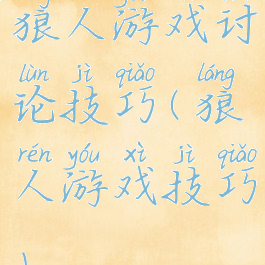 狼人游戏讨
lùn jì qiǎo láng
论技巧(狼
rén yóu xì jì qiǎo
人游戏技巧
)